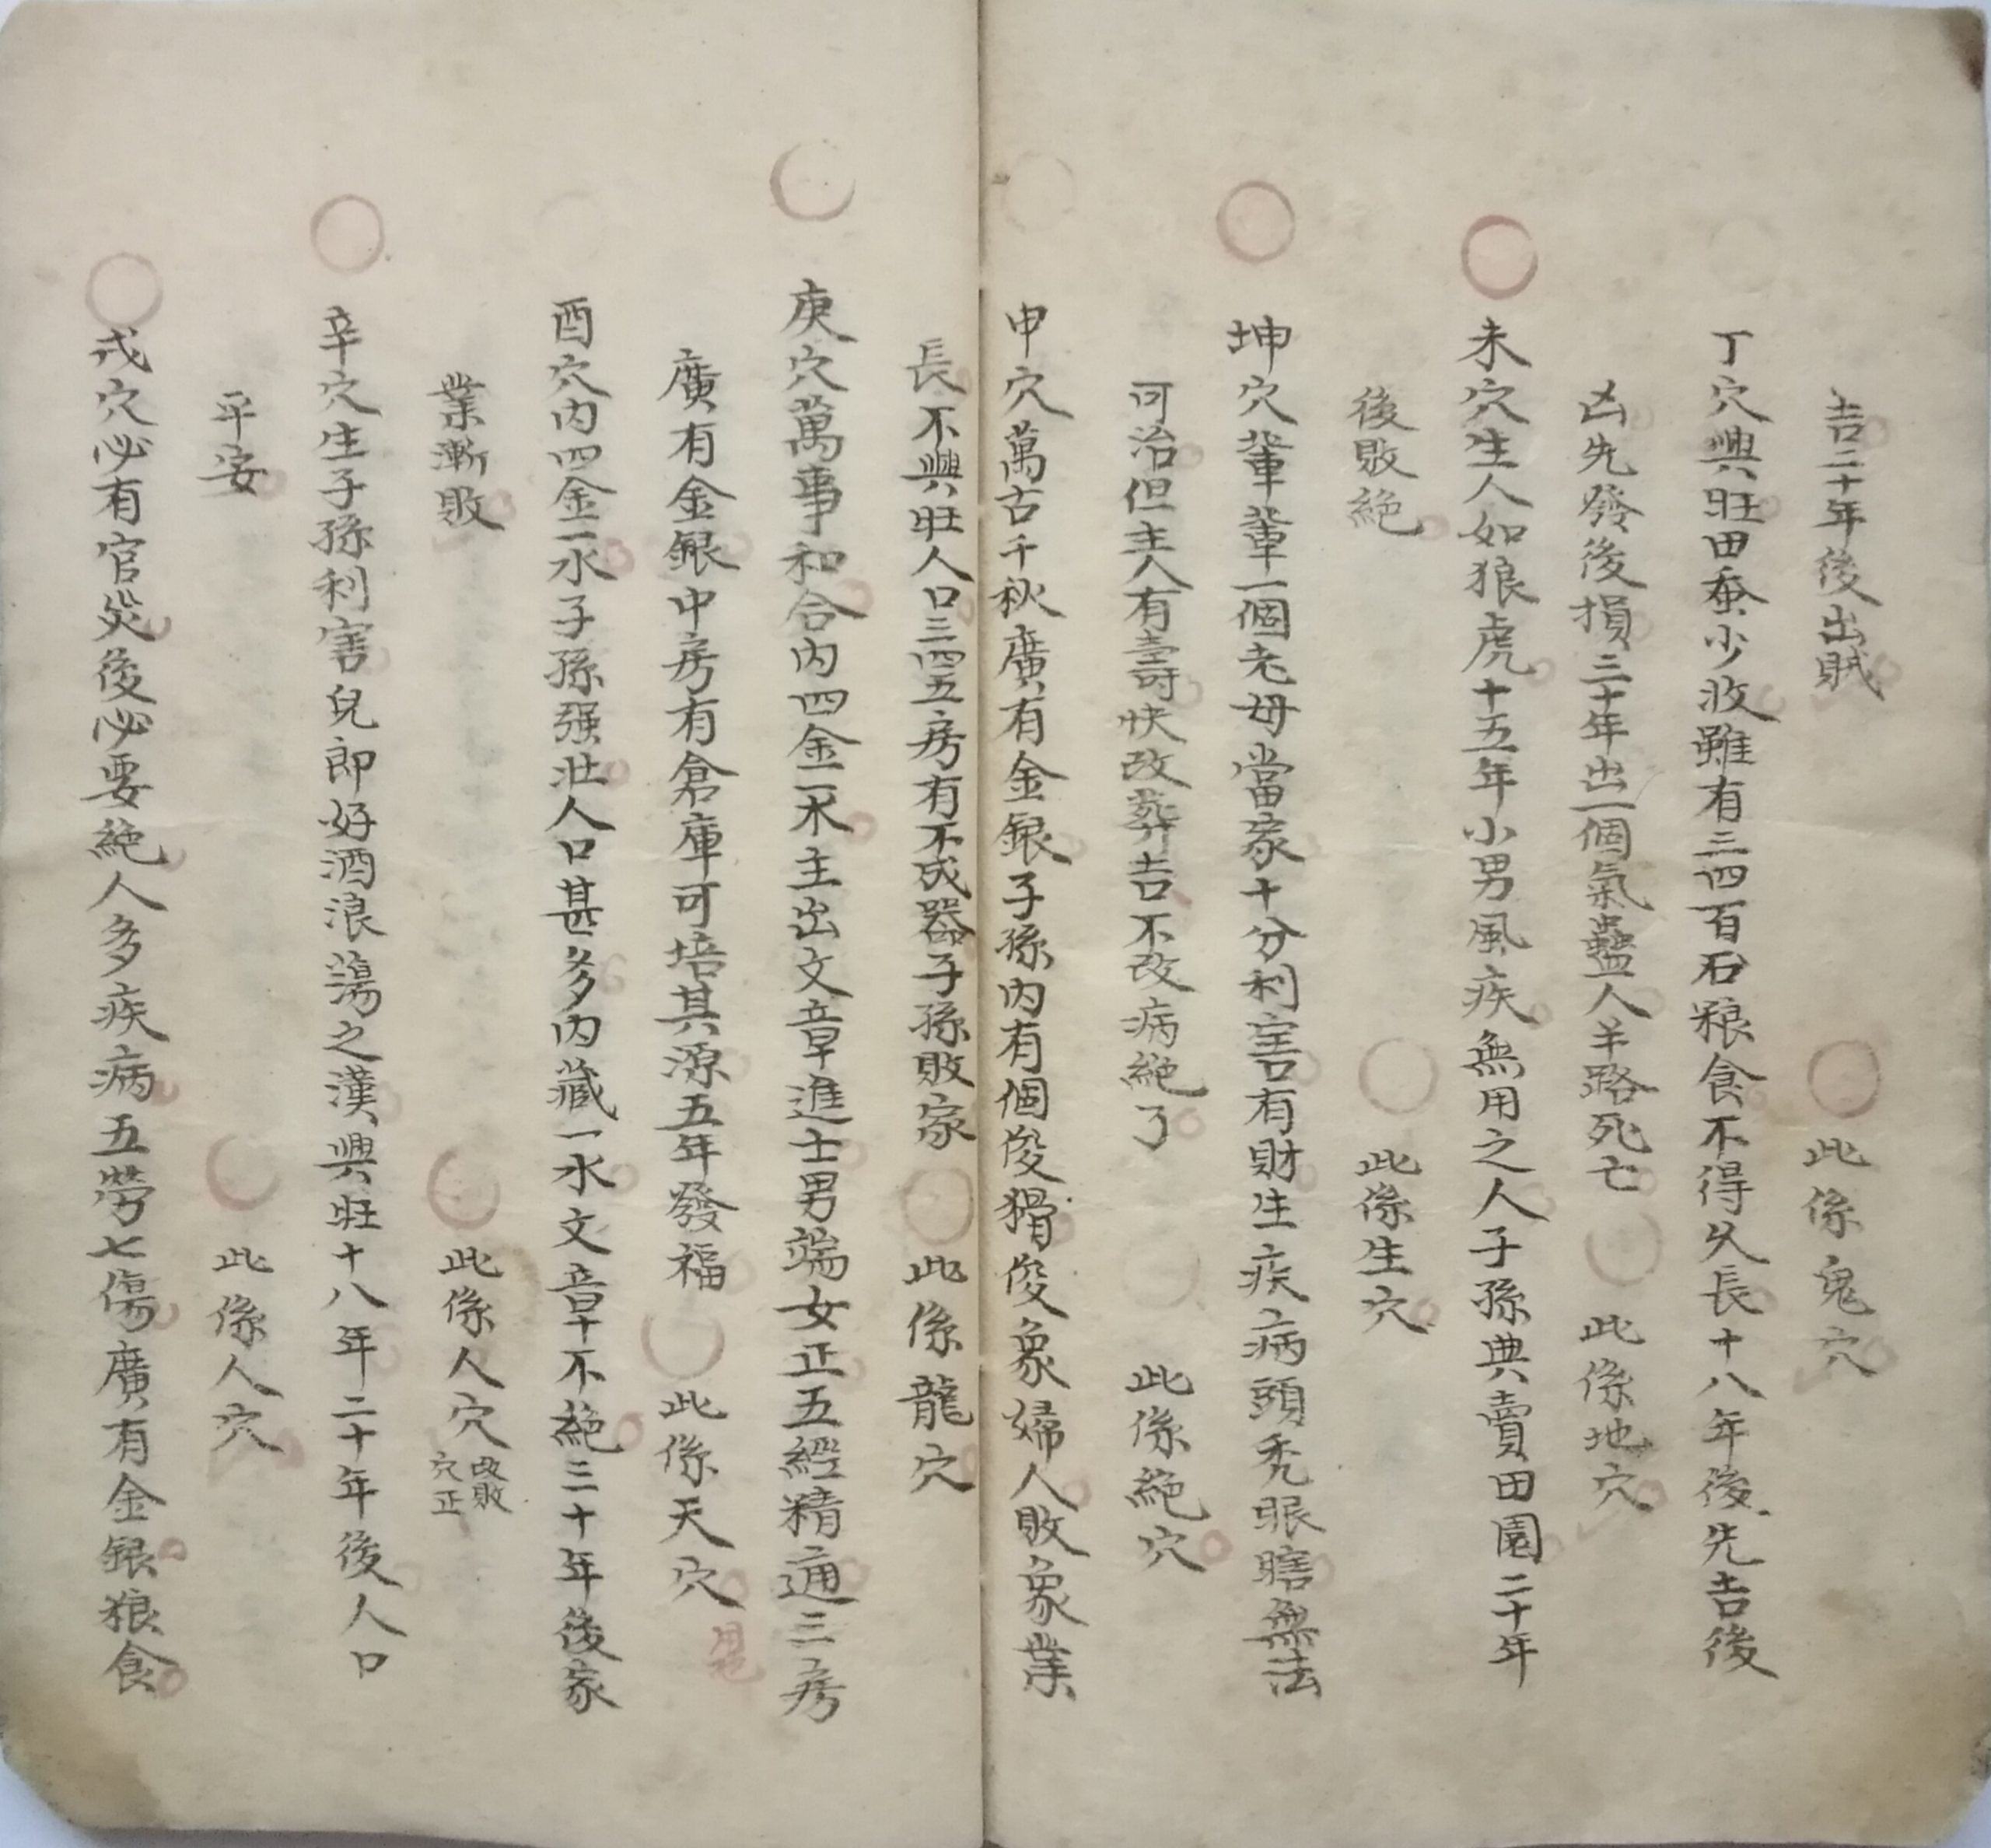 吉二十年後出賊　此係鬼穴
丁穴興旺田蚕少收雖有三四百石粮食不得久長十八年後先吉後
凶先發後損三十年出一個氣蠱人羊路死亡　此係地穴
未穴生人如狼虎十五年小男風疾無用之人子孫典賣田園二十年
後敗絕　此係生穴
坤穴輩輩一個老母當家十分利害有財生疾病頭禿眼瞎無法
可治但主人有壽快改葬吉不改病絕了　此係絕穴
申穴萬古千秋廣有金銀子孫內有個俊猾俊象婦人敗象業
長不興旺人口三四五房有不成器子孫敗家　此係龍穴
庚穴萬事和合內四金一木主出文章進士男端女正五經精通三房
廣有金銀中房有倉庫可培其源五年發福　此係天穴
酉穴內四金一水子孫强壯人口甚多內藏一水文章不絕三十年後家
業漸敗　此係人穴 改敗穴正
辛穴生子孫利害兒郎好酒浪蕩之漢興旺十八年二十年後人口
平安　此係人穴
戌穴必有官災後必要絕人多疾病五勞七傷廣有金銀狼食